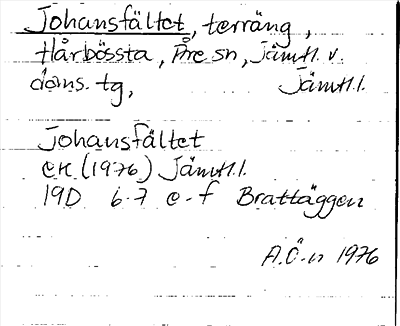 Johansfältet, terräng,
Hårbössta, Åre sn, Jämtl. v.
doms. tg, Jämtl. l.
Johansfältet
ek (1976) Jämtl. l.
19D 6-7 e-f Brattäggen
A.Ö-n 1976